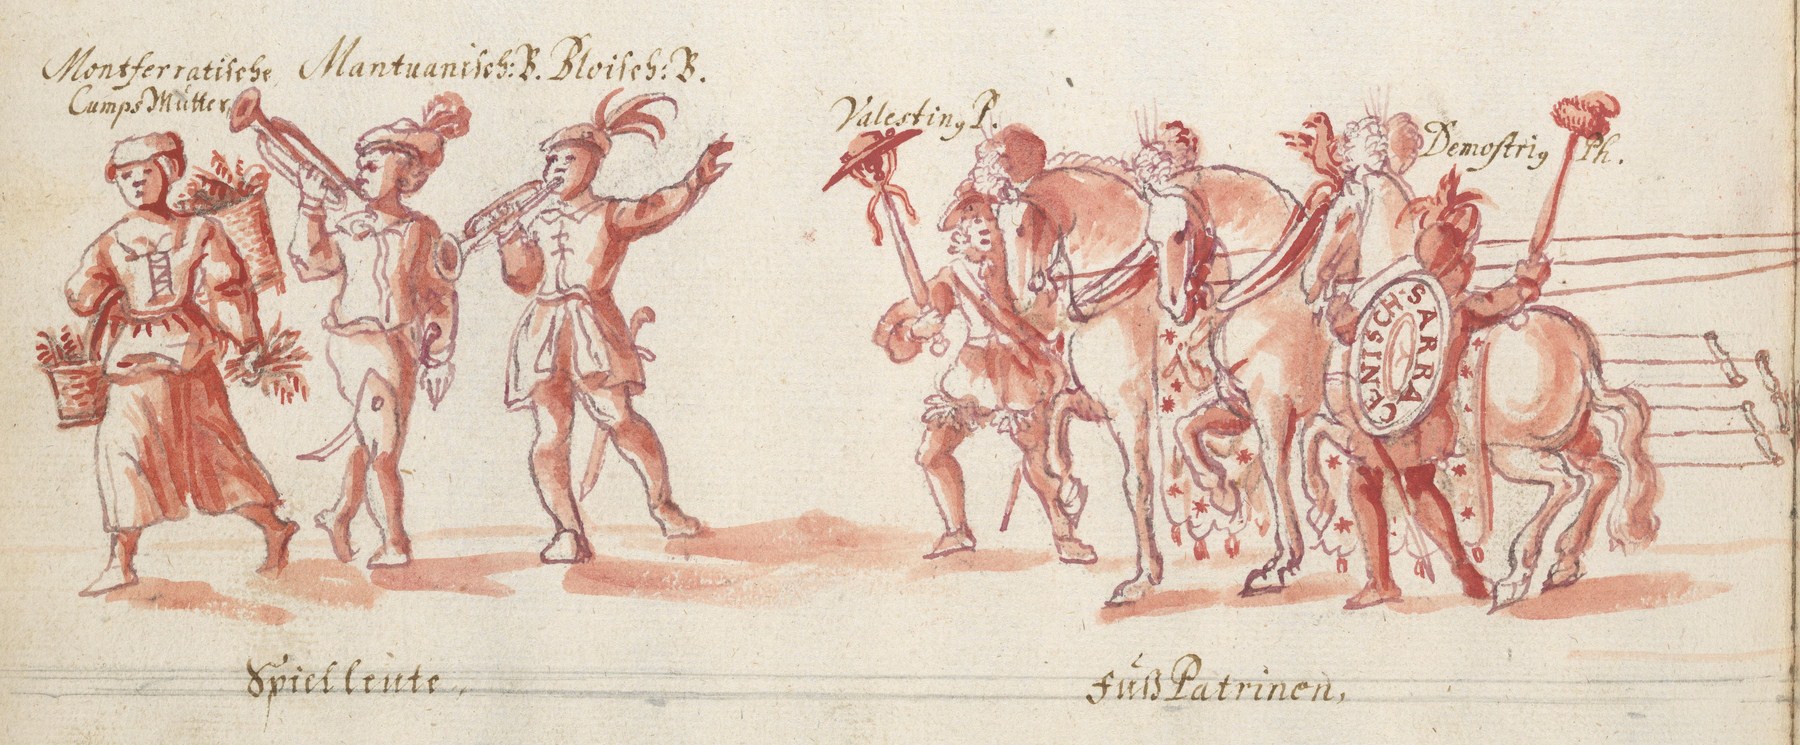 Montferratische
CampsMütter
Mantuanisch: B. Bloisch: B.
Valesting P.
Demostrig Ph.
SARRACENISCH-
Spielleute,
FüßPatrinen,